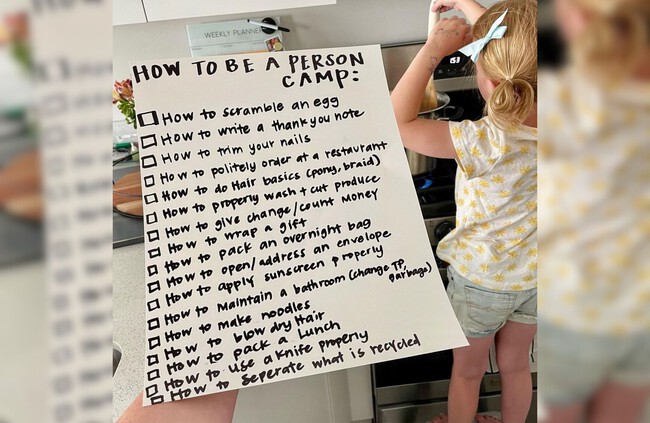 WEEKLY PLANNER
HOW TO BE A PERSON
CAMP:
HOW TO scramble an egg
HOW TO write a thank you note
HOW TO trim your nails
HOW TO politely order at a restaurant
HOW TO do Hair basics (pony, braid)
HOW TO properly wash + cut produce
HOW TO give change/count money
HOW TO wrap a gift
HOW TO pack an overnight bag
HOW TO open/address an envelope
HOW TO apply sunscreen properly
HOW TO Maintain a bathroom (change TP,
garbage)
HOW TO make noodles
HOW TO blow dry Hair
HOW TO pack a Lunch
HOW TO use a knife properly
HOW TO seperate what is recycled